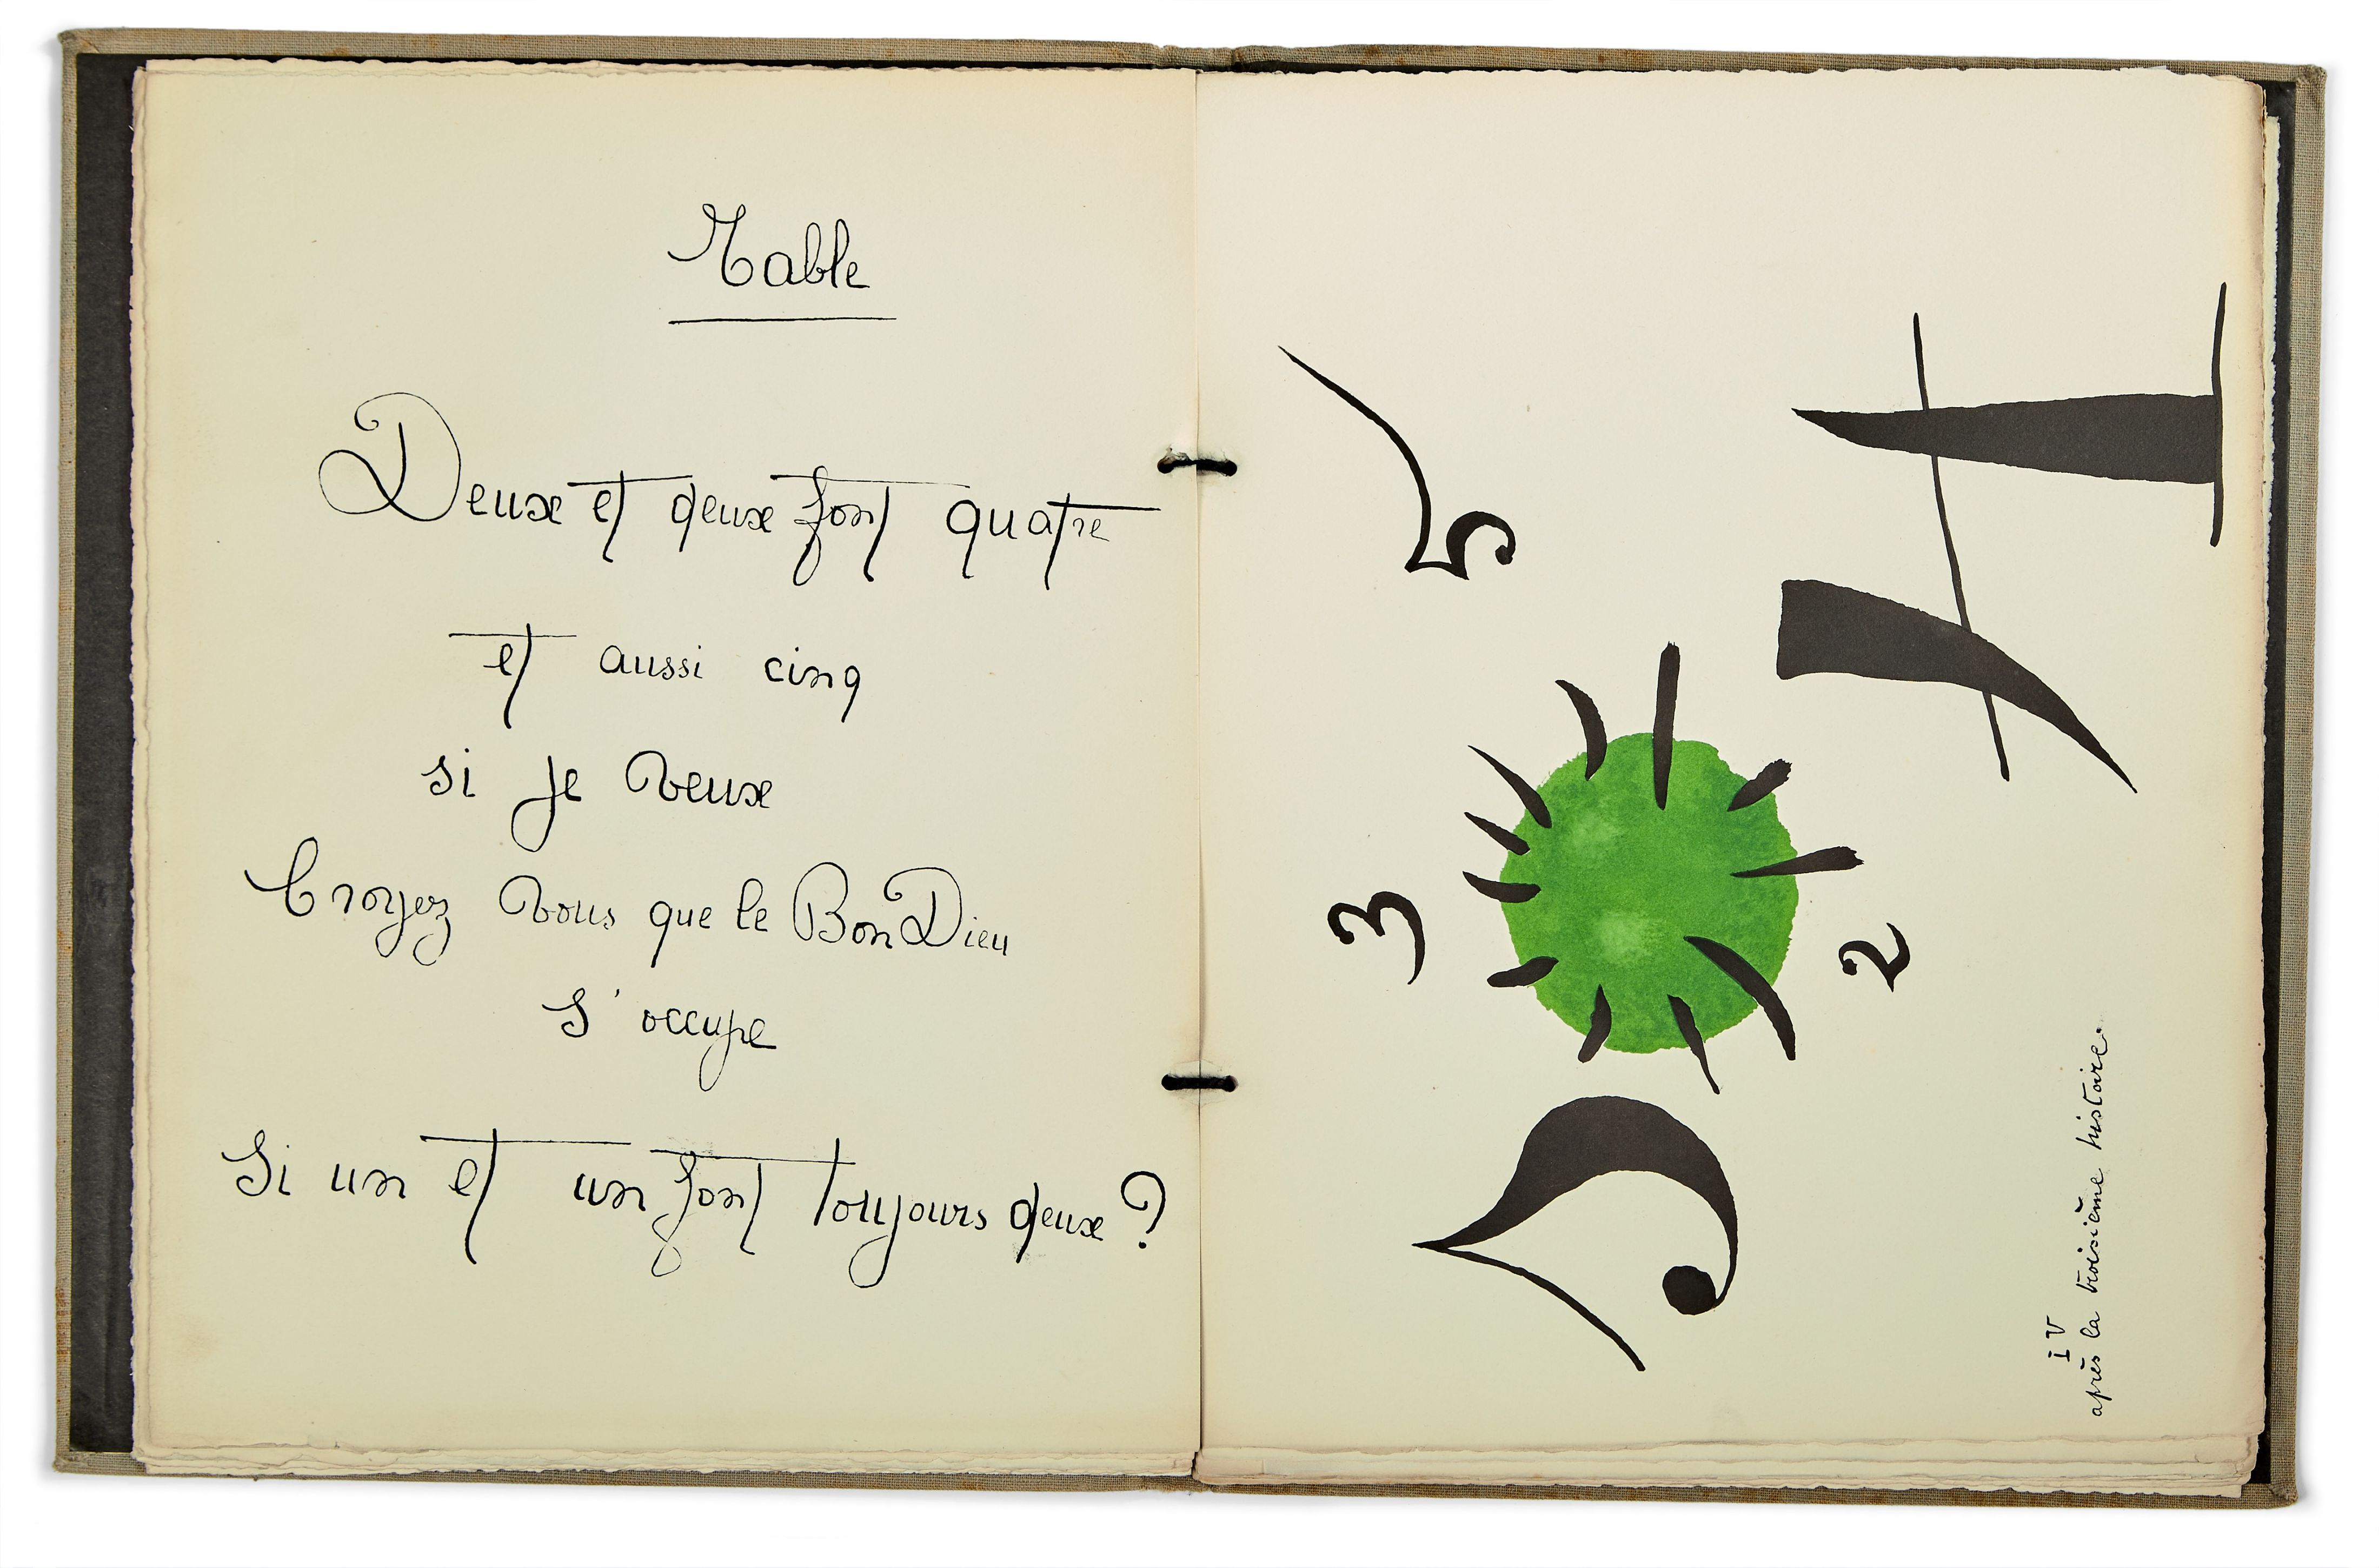 Table
Deux et deux font quatre
et aussi cinq
si je veux
Croyez vous que le Bon Dieu
s'occupe
Si un et un font toujours deux?
5
3
2
IV
après la troisième histoire.